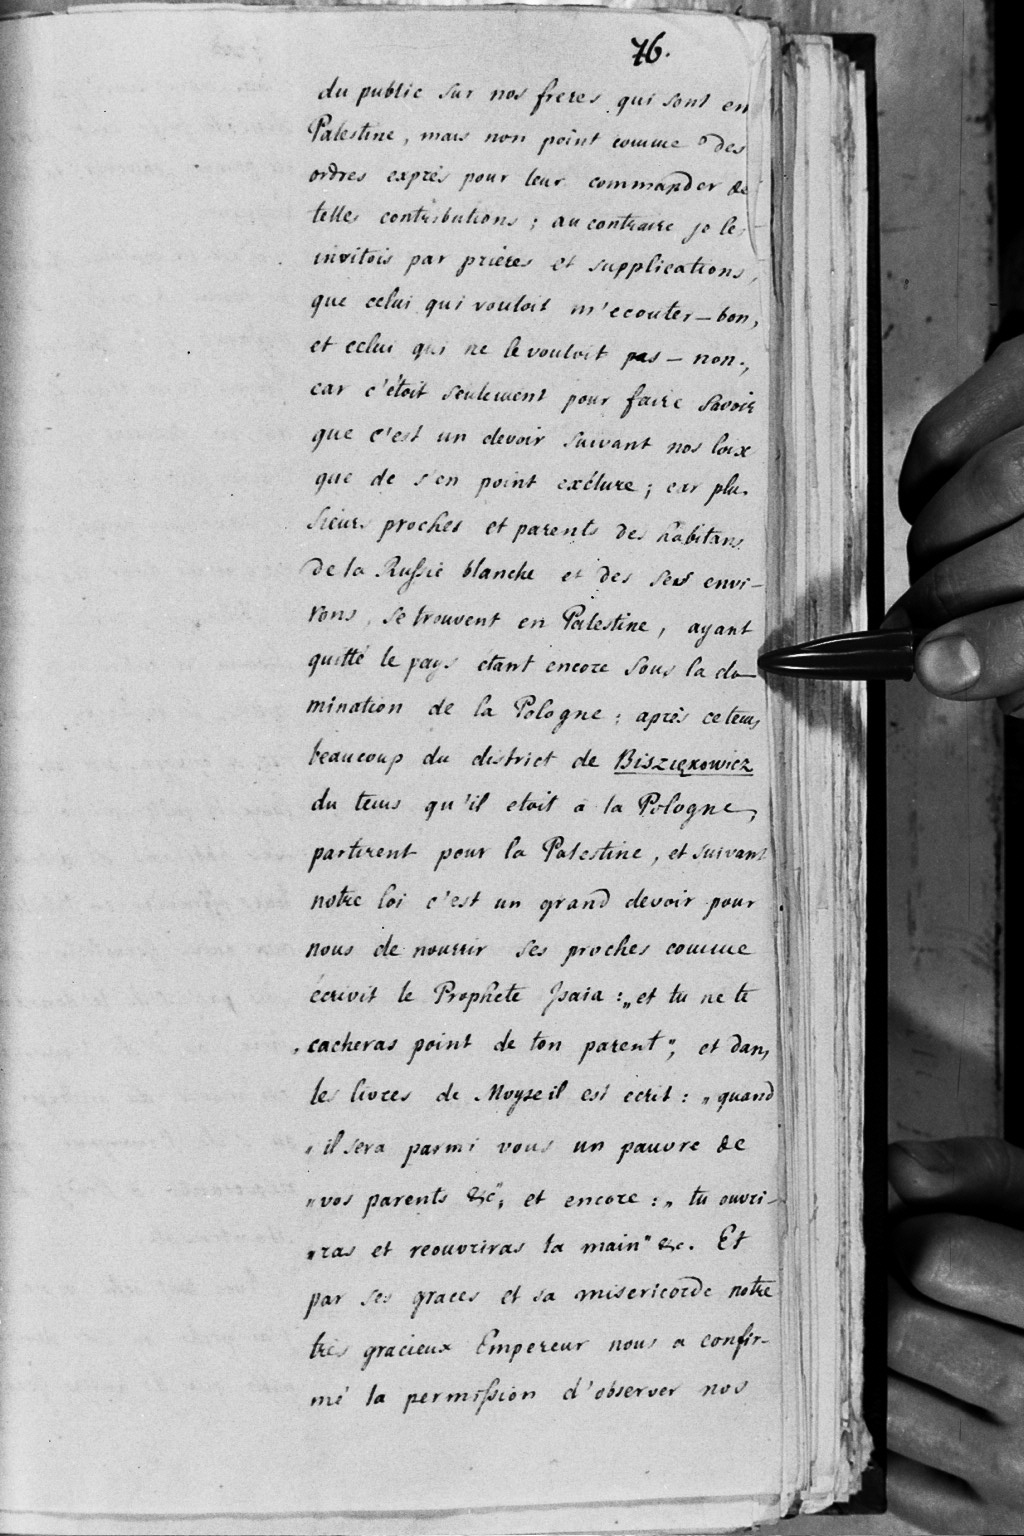 76.
du public sur nos freres qui sont en
Palestine, mais non point comme des
ordres exprés pour leur commander de
telles contributions ; au contraire je les
invitois par prières et supplications,
que celui qui vouloit m'ecouter — bon,
et celui qui ne le vouloit pas — non.,
car c'étoit seulement pour faire savoir
que c'est un devoir suivant nos loix
que de s'en point exclure ; car plu-
sieurs proches et parents des habitans
de la Russie blanche et des ses envi-
rons, se trouvent en Palestine, ayant
quitté le pays etant encore sous la do-
mination de la Pologne ; après ce tems
beaucoup du district de
du tems qu'il etoit a la Pologne,
partirent pour la Palestine, et suivant
notre loi c'est un grand devoir pour
nous de nourrir ses proches comme
écrivit le Prophete Isaia : „et tu ne te
„cacheras point de ton parent”, et dans
les livres de Moyse il est ecrit : „quand
„il sera parmi vous un pauvre de
„vos parents &c”, et encore : „tu ouvri-
„ras et reouvriras ta main” &c. Et
par ses graces et sa misericorde notre
très gracieux Empereur nous a confir-
mé la permission d'observer nos